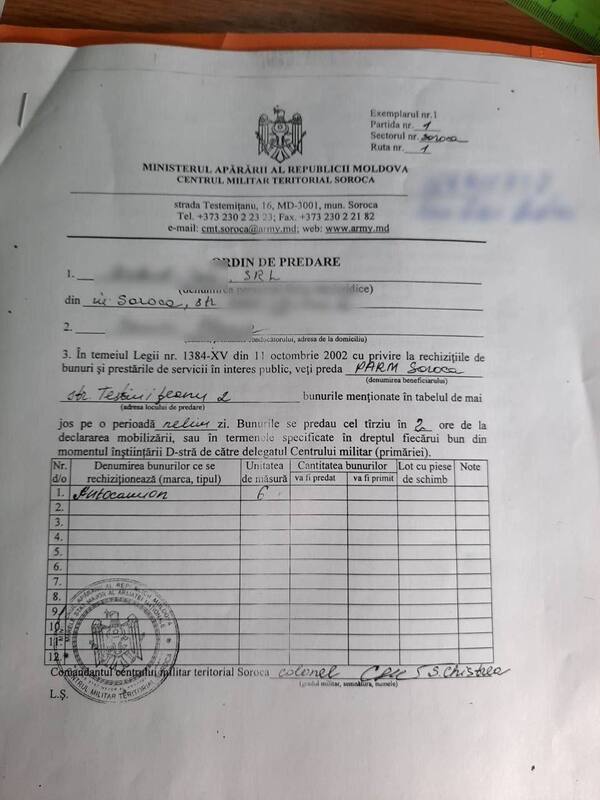 Exemplarul nr.1
Partida nr. 1
Sectorul nr. Soroca
Ruta nr. 1
MINISTERUL APĂRĂRII AL REPUBLICII MOLDOVA
CENTRUL MILITAR TERITORIAL SOROCA
strada Testemițanu, 16, MD-3001, mun. Soroca
Tel. +373 230 2 23 23; Fax. +373 230 2 21 82
e-mail: cmt.soroca@army.md; web: www.army.md
ORDIN DE PREDARE
1. SRL
din m. Soroca, str
2.
adresa de la domiciliu)
3. În temeiul Legii nr. 1384-XV din 11 octombrie 2002 cu privire la rechizițiile de
bunuri și prestările de servicii în interes public, veți preda PARM Soroca
(denumirea beneficiarului)
str. 2 bunurile menționate în tabelul de mai
(adresa locului de predare)
jos pe o perioadă zi. Bunurile se predau cel tîrziu în 2 ore de la
declararea mobilizării, sau în termenele specificate în dreptul fiecărui bun din
momentul înștiințării D-stră de către delegatul Centrului militar (primăriei).
Nr. d/o Denumirea bunurilor ce se rechiziționează (marca, tipul) Unitatea de măsură Cantitatea bunurilor va fi predat va fi primit Lot cu piese de schimb Note
1. Autocamion 6
2.
3.
4.
5.
6.
7.
8.
9.
10.
11.
12.
Comandantul centrului militar teritorial Soroca colonel S. Chistola
(gradul militar, semnătura, numele)
L.Ș.
CENTRUL MILITAR TERITORIAL